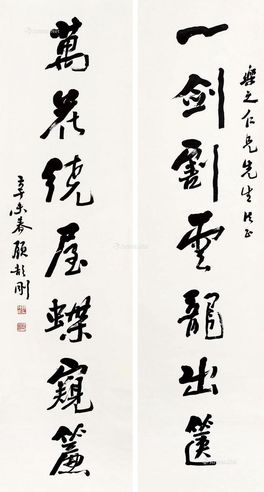 樂之仁兄先生法正
一剑割雲龍出匧
萬花繞屋蝶窺簾
辛未春顧頡剛